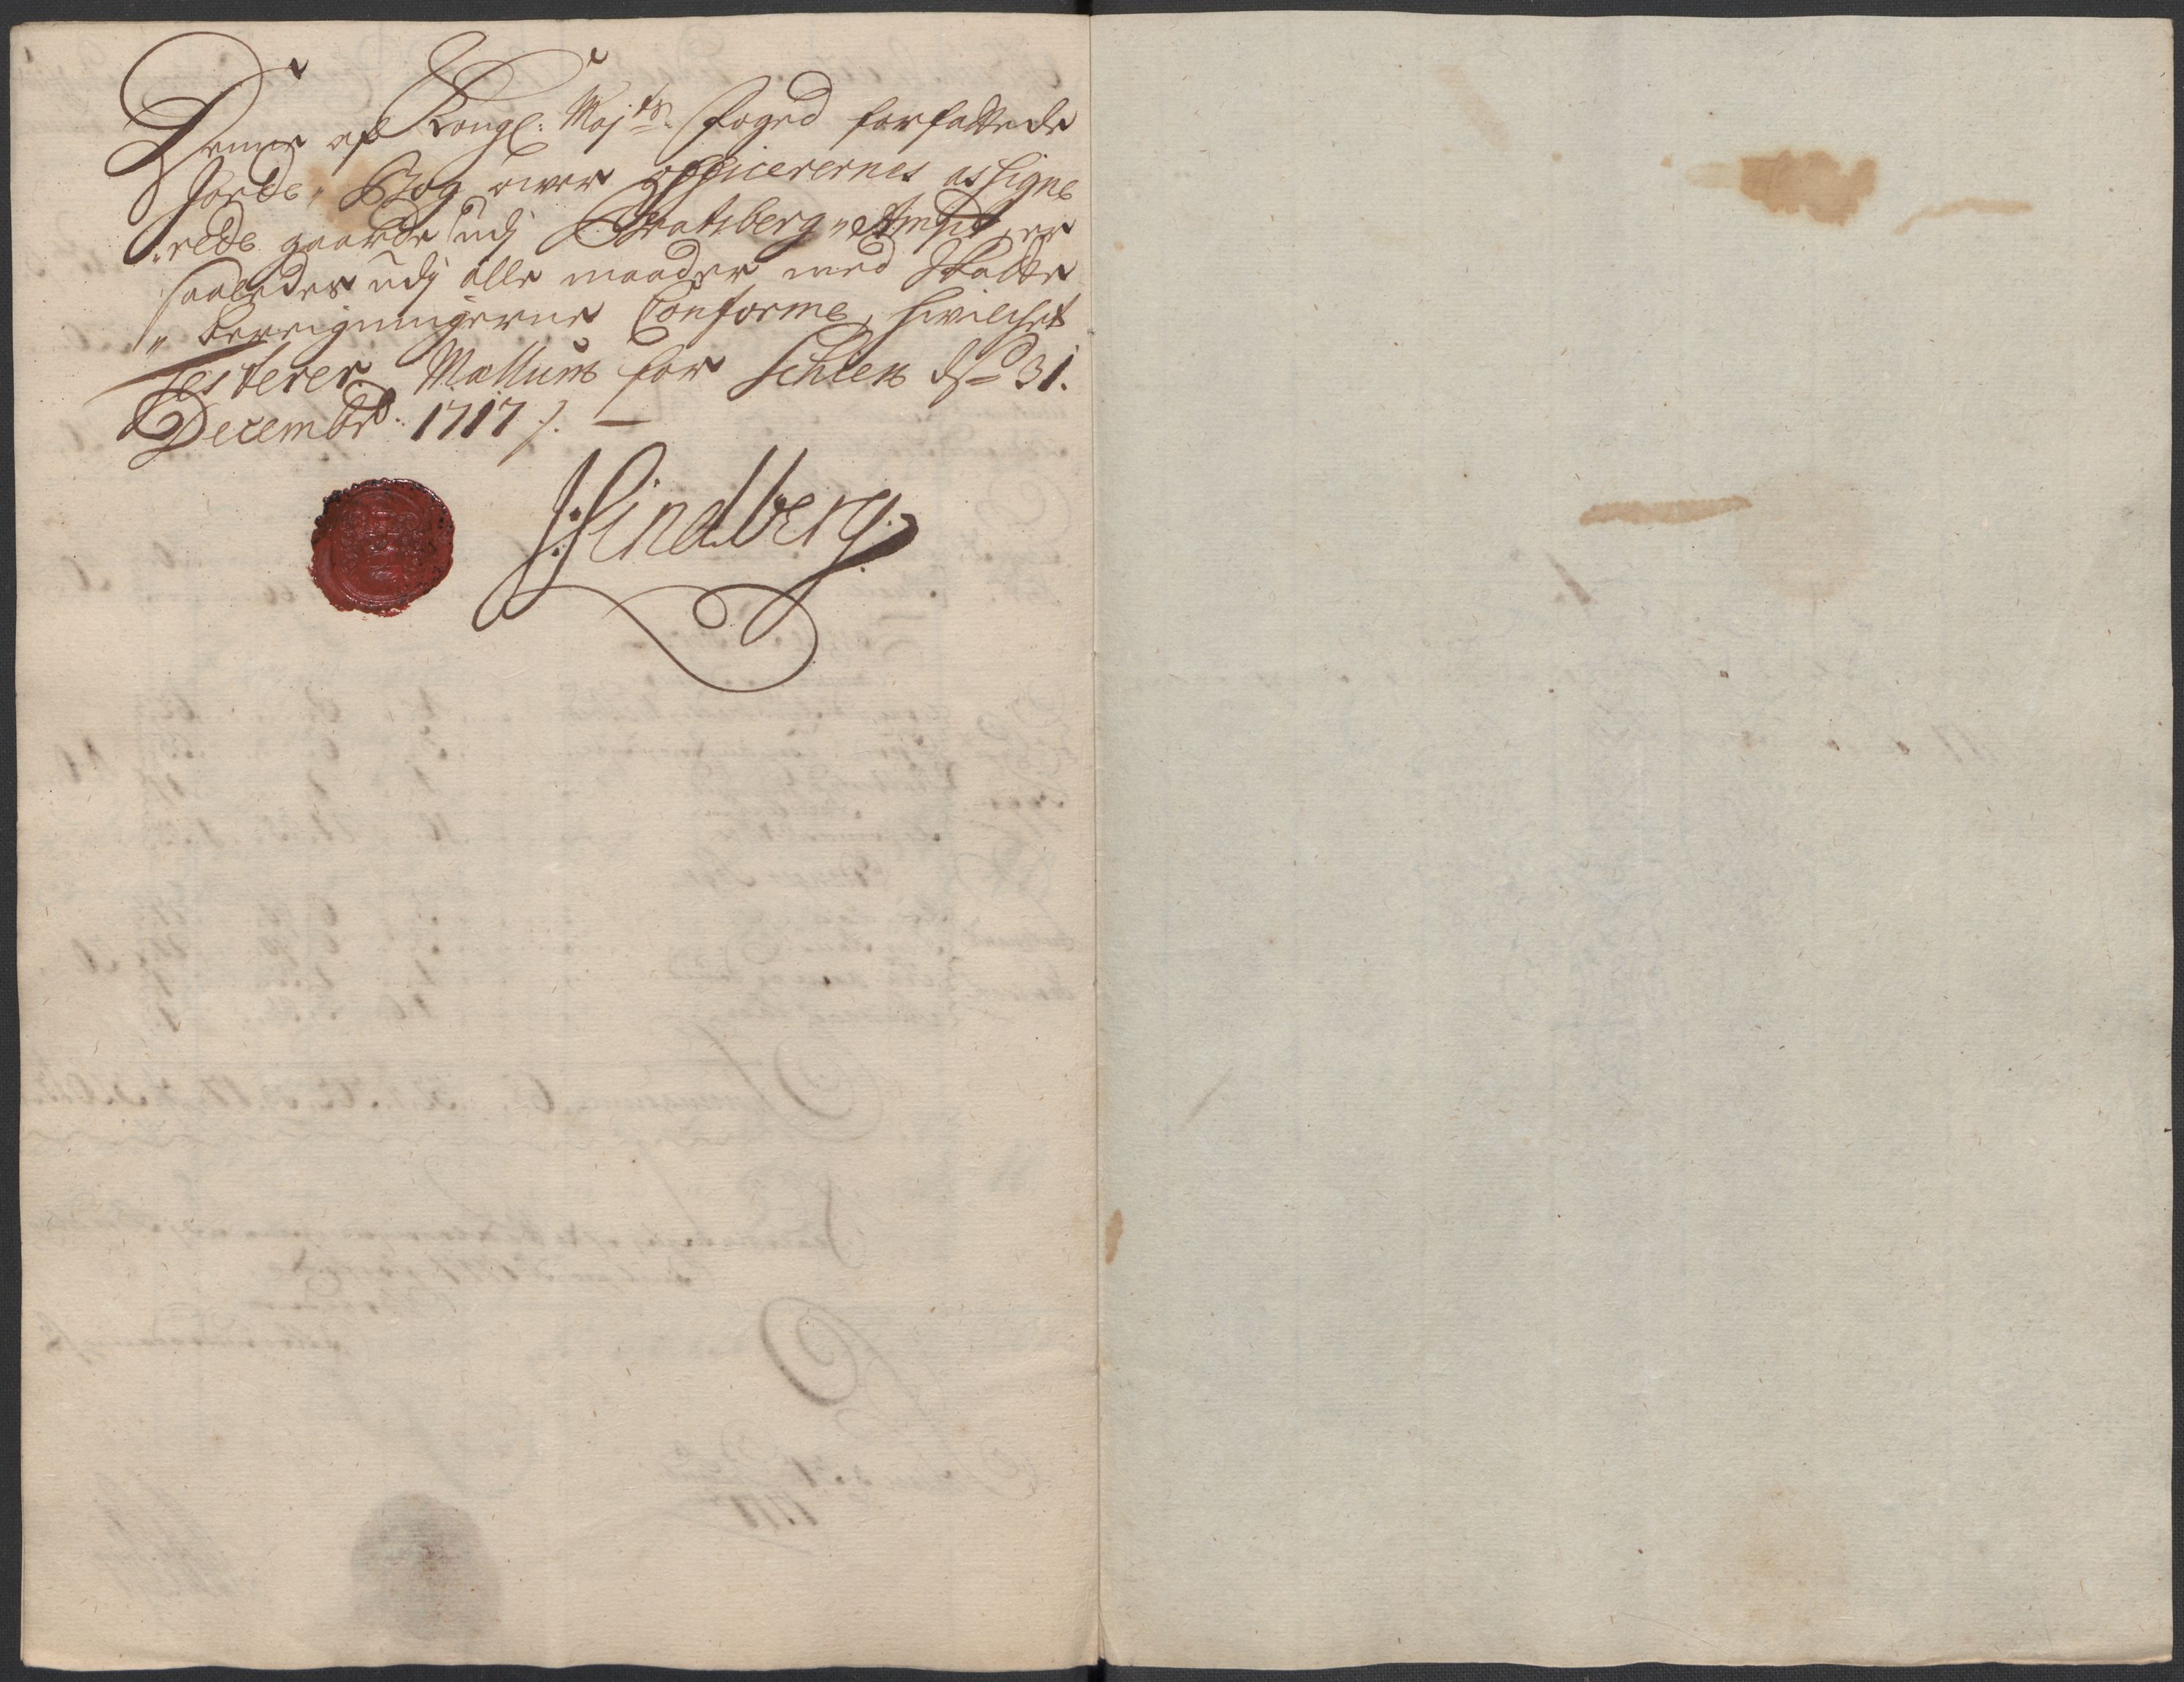 Denne af Kongl: Majts. Foged forfattede
Jorde, Bog over officerernes assigne
rede gaarde udj Bratsberg Ampt, er
saaledes udj alle maader med Skatte
" berreigningerne Conforme, hvilchet
Testerer Mallum for Schien dn 31.
Decembr. 1717 /. —
J: Lindberg.